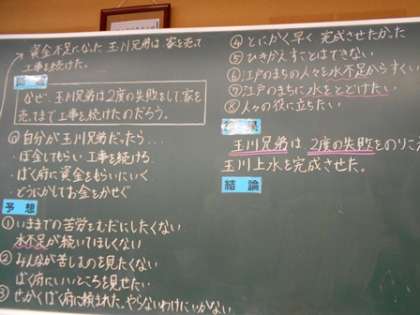 資金不足になった玉川兄弟は家を売って
工事を続けた。
なぜ、玉川兄弟は2度の失敗をして、家を
売ってまで工事を続けたのだろう。
自分が玉川兄弟だったら…
・ぼ金してもらい工事を続ける
・ばく府に資金をもらいにいく
・どうにかしてお金をかせぐ
予想
①いままでの苦労をむだにしたくない
水不足が続いてほしくない
②みんなが苦しむのを見たくない
ばく府にいいところを見せたい
③せっかくばく府に頼まれた。やらないわけにいかない
④とにかく早く完成させたかった
⑤ひきかえすことはできない
⑥江戸のまちの人々を水不足からすくい
⑦江戸のまちに水をとどけたい
⑧人々の役に立ちたい
玉川兄弟は2度の失敗をのりこ
玉川上水を完成させた。
結論